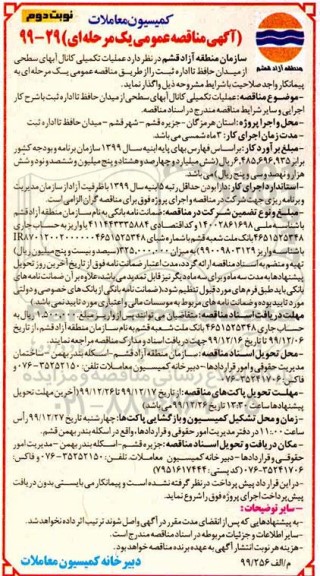 نوبت دوم
کمیسیون معاملات
(آگهی مناقصه عمومی یک مرحله ای) ۲۹-۹۹
منطقه آزاد قشم
سازمان منطقه آزاد قشم در نظر دارد عملیات تکمیلی کانال آبهای سطحی
از میدان حافظ تا اداره ثبت را از طریق مناقصه عمومی یک مرحله ای به
پیمانکار واجد صلاحیت با شرایط مشروحه ذیل واگذار نماید.
-موضوع مناقصه: عملیات تکمیلی کانال آبهای سطحی از میدان حافظ تا اداره ثبت با شرح کار
اجرایی و سایر شرایط مناقصه مندرج در اسناد مناقصه.
-محل اجرا پروژه: استان هرمزگان - جزیره قشم - شهر قشم - میدان حافظ تا اداره ثبت
-مدت زمان اجرای کار: ۳ ماه شمسی می باشد.
-مبلغ برآورد کار: بر اساس فهارس بهای پایه ابنیه سال ۱۳۹۹ سازمان برنامه و بودجه کشور
برابر ۶,۴۸۵,۶۹۶,۹۳۵ ریال (شش میلیارد و چهارصد و هشتاد و پنج میلیون و ششصد و نود و شش
هزار و نهصد و سی و پنج ریال) می باشد.
-استاندارد اجرای کار: دارا بودن حداقل رتبه ۵ ابنیه سال ۱۳۹۹ با ظرفیت آزاد از سازمان مدیریت
و برنامه ریزی جهت شرکت در مناقصه و اجرای پروژه فوق برای مناقصه گران الزامی است.
-مبلغ و نوع تضمین شرکت در مناقصه: ضمانت نامه بانکی به نام سازمان منطقه آزاد قشم
باشناسه ملی ۱۴۰۰۲۸۶۱۶۹۸ و کد اقتصادی ۴۱۱۴۴۳۳۳۵۸۸۴ یا واریز به حساب جاری
۴۶۵۱۵۲۵۳۴۸ بانک ملت شعبه قشم
تهیه و منضم به اسناد مناقصه ارائه گردد. مدت اعتبار ضمانت نامه فوق از تاریخ آخرین روز تحویل
پیشنهادها به مدت سه ماه و برای سه ماه دیگر نیز قابل تمدید می باشد، علاوه بر آن ضمانت نامه های
بانکی باید طبق فرم های مورد قبول تنظیم شود، (ضمانت نامه بانکی از بانک های خصوصی و دولتی
مورد تایید بوده و ضمانت نامه های مربوط به موسسات مالی و اعتباری مورد تایید نمی باشد)
-مهلت دریافت اسناد مناقصه: متقاضیان می توانند پس از واریز مبلغ ریال به
حساب جاری ۴۶۵۱۵۲۵۳۴۸ بانک ملت شعبه قشم به نام سازمان منطقه آزاد قشم، از تاریخ
۹۹/۱۲/۰۶ تا تاریخ ۹۹/۱۲/۱۶ جهت دریافت اسناد و مدارک مناقصه مراجعه نمایند.
-محل تحویل اسناد مناقصه: سازمان منطقه آزاد قشم - اسکله بندر بهمن - ساختمان
مدیریت حقوقی و امور قراردادها - دبیرخانه کمیسیون معاملات تلفن: ۳۵۲۵۲۱۵۰-۰۷۶ و
فاکس: ۳۵۲۴۱۷۰۶-۰۷۶
-مهلت تحویل پاکت های مناقصه: از تاریخ ۹۹/۱۲/۱۷ تا ۹۹/۱۲/۲۶ (آخرین مهلت تحویل
پیشنهادها ساعت ۱۳:۳۰ تاریخ ۹۹/۱۲/۲۶ می باشد)
-زمان و محل تشکیل کمیسیون و بازگشایی پاکت ها: چهارشنبه تاریخ ۹۹/۱۲/۲۷ رأس
ساعت ۱۱:۰۰ در دفتر مدیریت امور حقوقی و قراردادها، واقع در اسکله بندر بهمن قشم.
-مکان دریافت و تحویل اسناد مناقصه: جزیره قشم - اسکله بندر بهمن - مدیریت امور
حقوقی و قراردادها - دبیرخانه کمیسیون معاملات. تلفن: ۳۵۲۵۲۱۵۰-۰۷۶ و فاکس:
۳۵۲۴۱۷۰۶-۰۷۶ (کد پستی: ۷۹۵۱۶۱۷۴۴۴)
-در این قرارداد پیش پرداخت در نظر گرفته نشده است و پیمانکار می بایستی بدون دریافت
پیش پرداخت اجرای پروژه فوق را شروع نماید.
-سایر توضیحات:
-به پیشنهادهایی که پس از انقضای مدت مقرر در آگهی واصل شوند ترتیب اثر داده نخواهد شد.
-سایر اطلاعات و جزئیات مربوطه در اسناد مناقصه مندرج است.
-هزینه هر نوبت انتشار آگهی به عهده برنده مناقصه خواهد بود.
م/الف ۹۹/۲۵۶
دبیرخانه کمیسیون معاملات